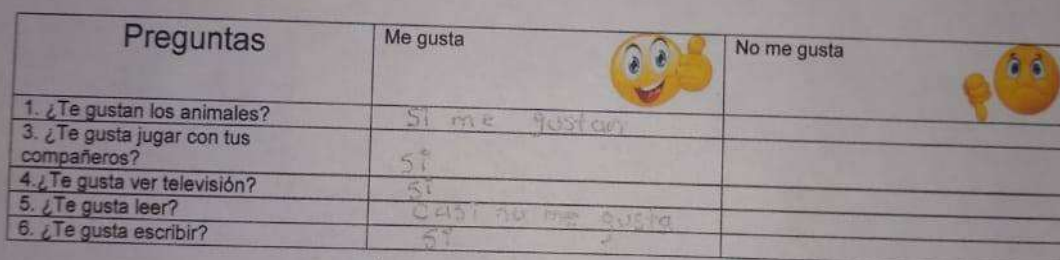 Preguntas Me gusta No me gusta
1. ¿Te gustan los animales? Si me gustan
3. ¿Te gusta jugar con tus
compañeros? si
4.¿Te gusta ver televisión? si
5. ¿Te gusta leer? casi no me gusta
6. ¿Te gusta escribir? si